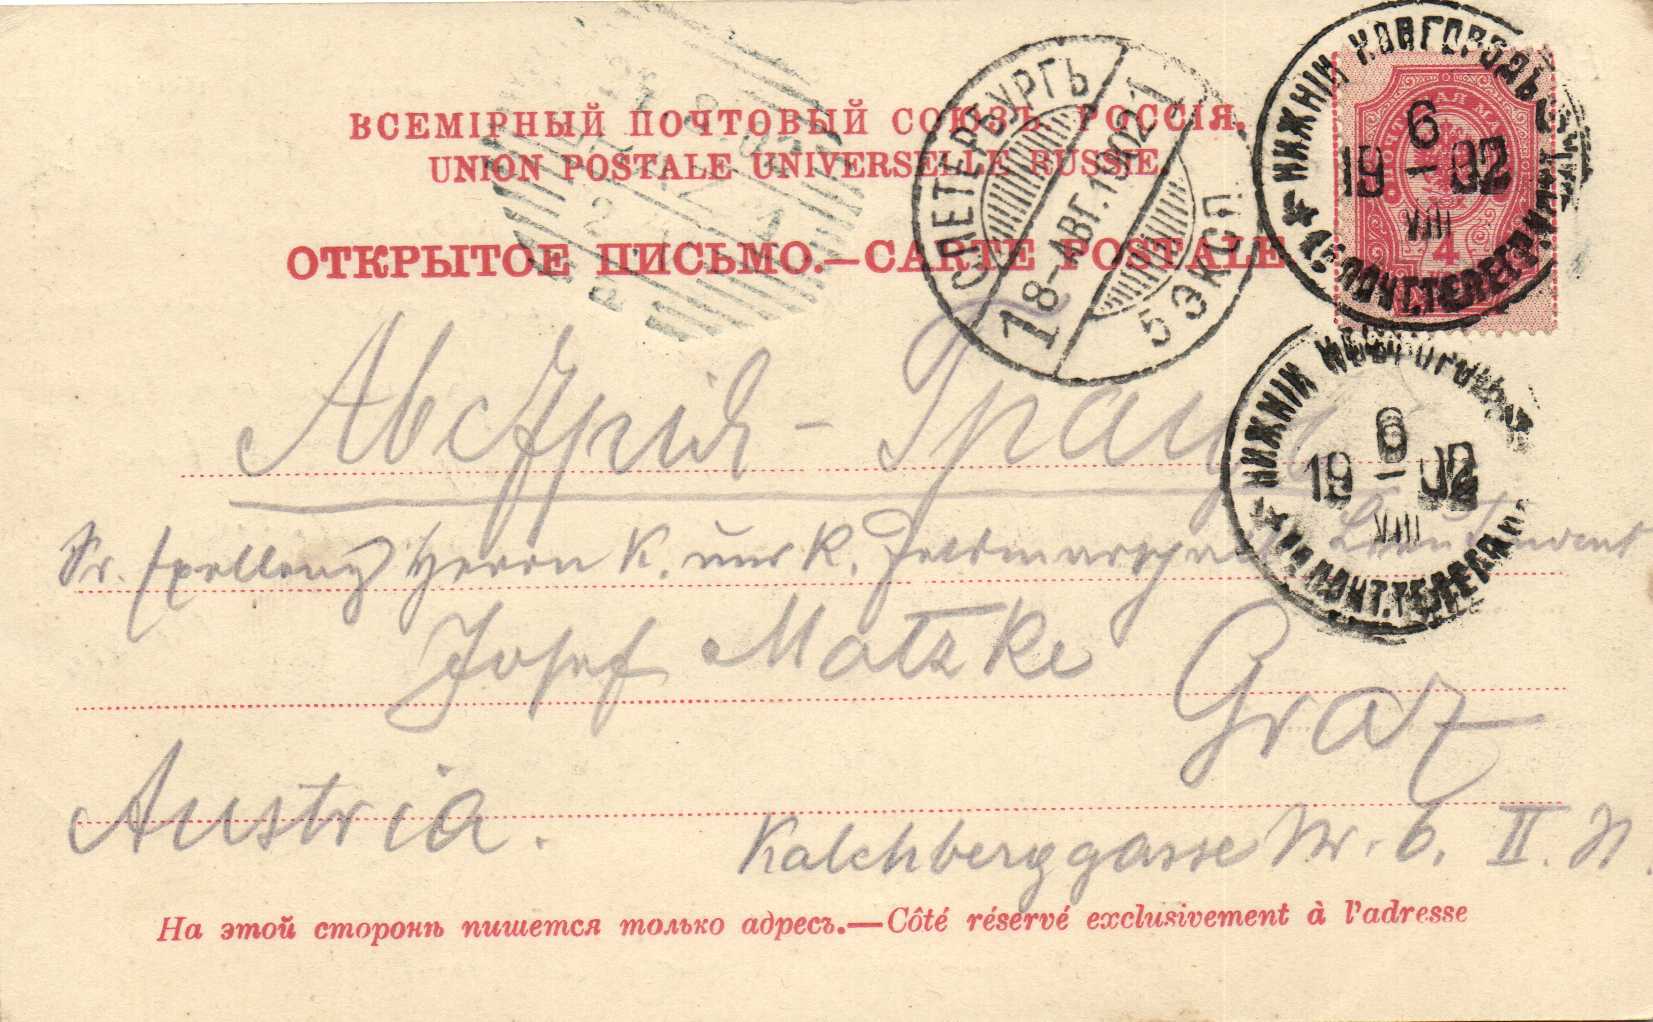 ВСЕМІРНЫЙ ПОЧТОВЫЙ СОЮЗЪ. РОССІЯ.
UNION POSTALE UNIVERSELLE RUSSIE.
ОТКРЫТОЕ ПИСЬМО.—CARTE POSTALE
С.ПЕТЕРБУРГЪ
18-АВГ.1902 1
5 ЭКСП
НИЖНІЙ НОВГОРОДЪ
6
19 - 02
VIII
ПОЧТ.ТЕЛЕГР.
4
НИЖНІЙ НОВГОРОДЪ
6
19 - 02
VIII
ПОЧТ.ТЕЛЕГР.
Австрія - Грацъ
Sr. Exellenz Herrn K. und K. Feldmarschall Leutnant
Josef Matzke
Graz
Austria.
Kalchberggasse Nr. 6. II.
На этой сторонѣ пишется только адресъ.—Côté réservé exclusivement à l'adresse